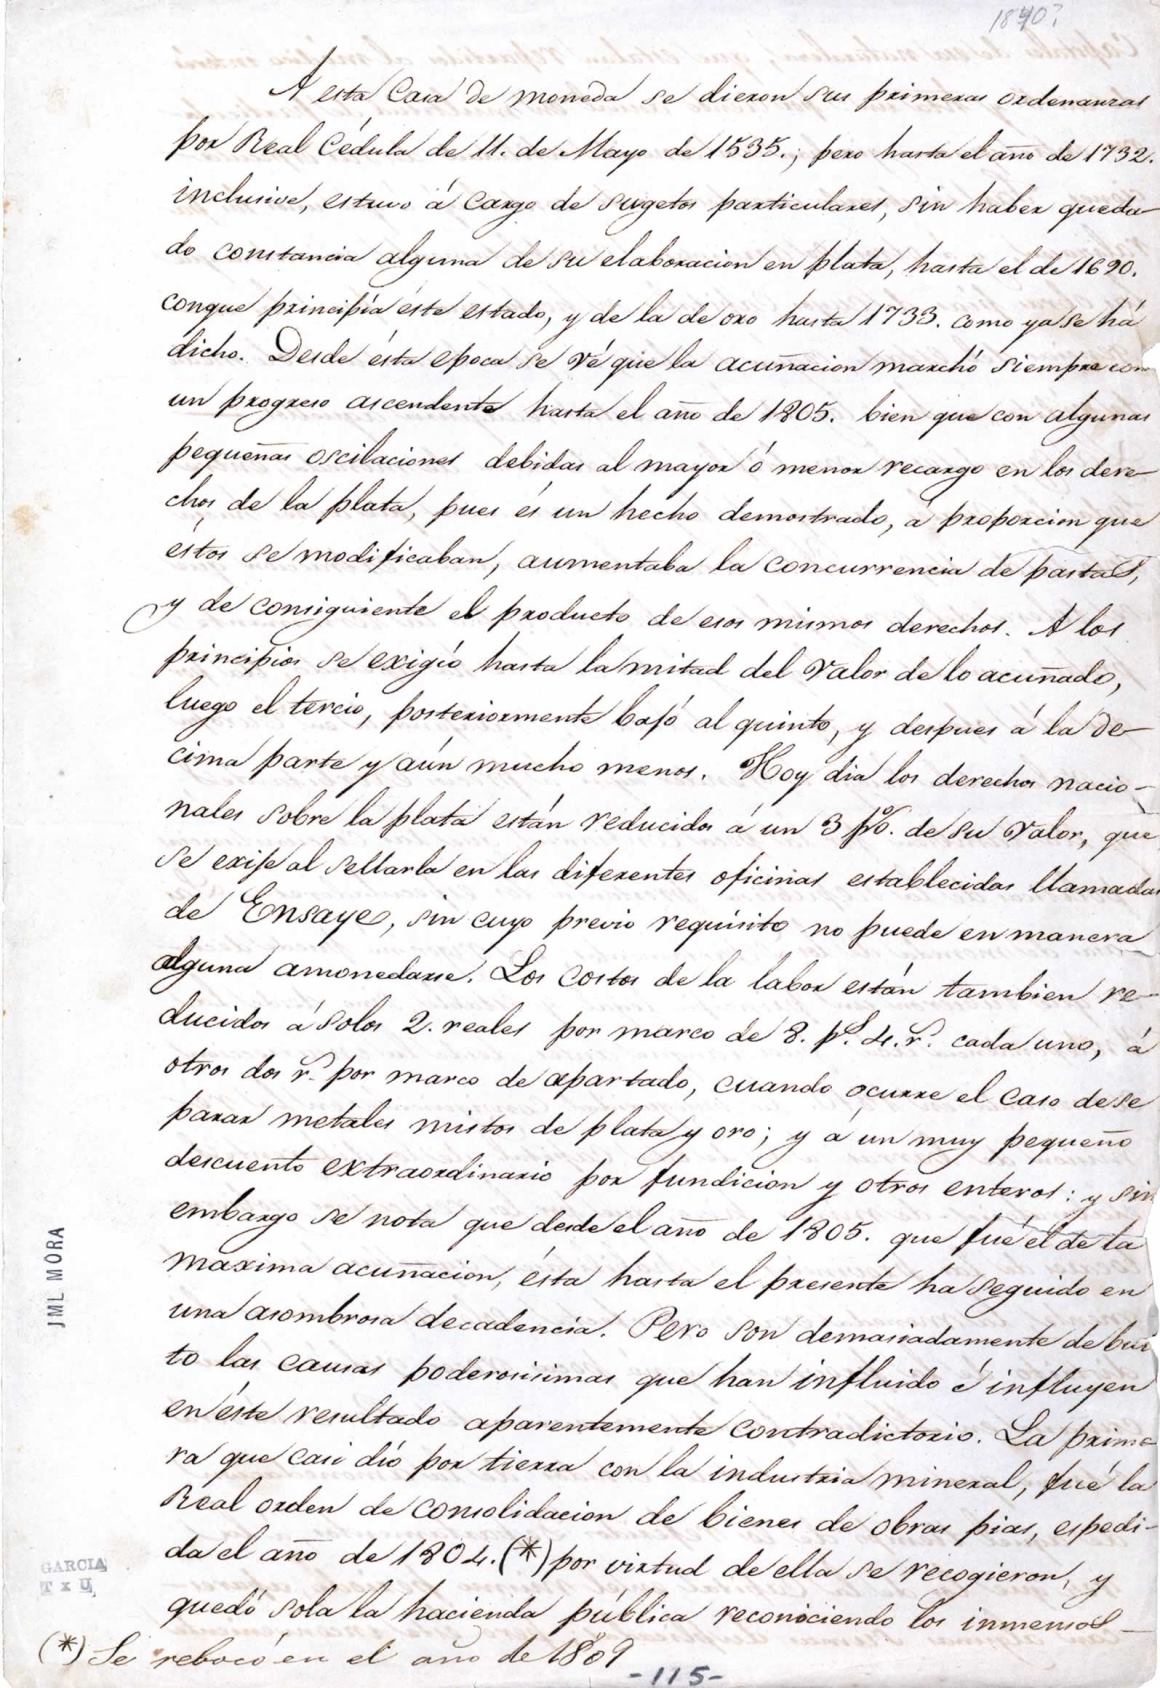 1840?
A esta Casa de moneda se dieron sus primeras ordenanzas
por Real Cédula de 11. de Mayo de 1535.; pero hasta el año de 1732.
inclusive, estuvo á cargo de sugetos particulares, sin haber queda-
do constancia alguna de su elaboracion en plata, hasta el de 1690.
conque principia éste estado, y de la de oro hasta 1733. como ya se há
dicho. Desde ésta epoca se vé que la acuñacion marchó siempre con
un progreso ascendente hasta el año de 1805. bien que con algunas
pequeñas oscilaciones debidas al mayor ó menor recargo en los dere-
chos de la plata, pues és un hecho demostrado, á proporcion que
éstos se modificaban, aumentaba la concurrencia de pastas,
y de consiguiente el producto de esos mismos derechos. A los
principios se exigió hasta la mitad del valor de lo acuñado,
luego el tercio, posteriormente bajó al quinto, y despues á la de-
cima parte y aún mucho menos. Hoy dia los derechos nacio-
nales sobre la plata están reducidos á un 3 p%. de su valor, que
se exije al sellarla en las diferentes oficinas establecidas llamadas
de Ensaye, sin cuyo previo requisito no puede en manera
alguna amonedarse. Los costos de la labor están tambien re-
ducidos á solos 2. reales por marco de 8. ps. 4. rs. cada uno, á
otros dos rs. por marco de apartado, cuando ocurre el caso de se
parar metales mistos de plata y oro; y á un muy pequeño
descuento extraordinario por fundicion y otros enteros: y sin
embargo se nota que desde el año de 1805. que fué el de la
maxima acuñacion, ésta hasta el presente ha seguido en
una asombrosa decadencia. Pero son demasiadamente de bul
to las causas poderosisimas que han influido é influyen
en éste resultado aparentemente contradictorio. La prime-
ra que casi dió por tierra con la industria mineral, fué la
Real orden de consolidacion de bienes de obras pias, espedi-
da el año de 1804. (*) por virtud de ella se recogieron, y
quedó sola la hacienda pública reconociendo los inmensos
(*) Se rebocó en el año de 1809
-115-
JML MORA
GARCIA
T x U